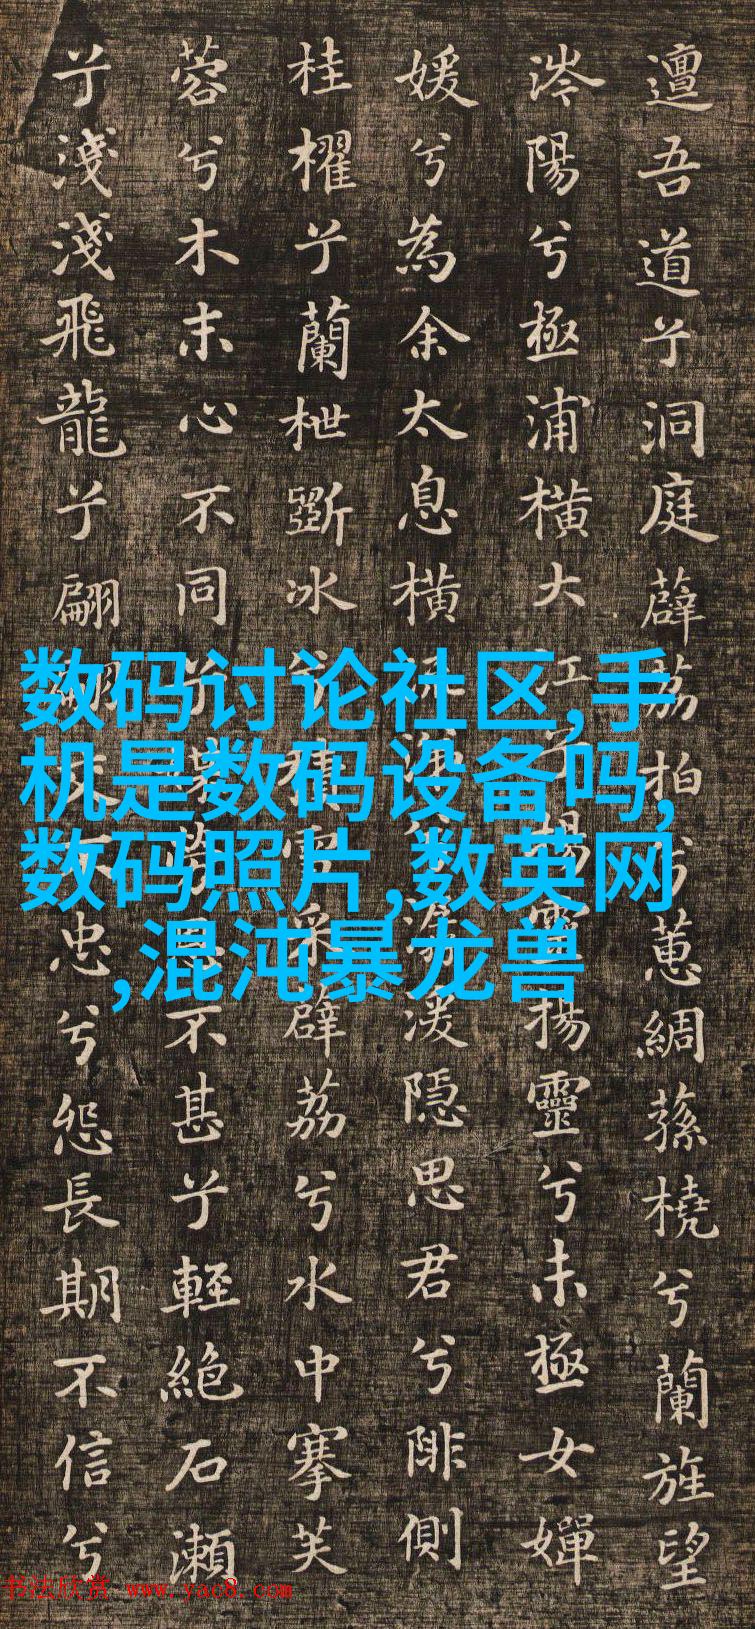 邅吾道兮洞庭薜荔柏兮蕙綢蓀橈兮蘭旌望
涔陽兮極浦橫大江兮揚靈揚靈兮未極女嬋
媛兮為余太息橫流涕兮潺湲隱思君兮陫側
桂櫂兮蘭枻斲冰兮積雪采辟荔兮水中搴芙
蓉兮木末心不同兮媒勞恩不甚兮輕絕石瀨
兮淺淺飛龍兮翩翩交不忠兮怨長期不信兮
数码讨论社区,手
机是数码设备吗,
数码照片,数英网
,混沌暴龙兽
书法欣赏 www.yac8.com